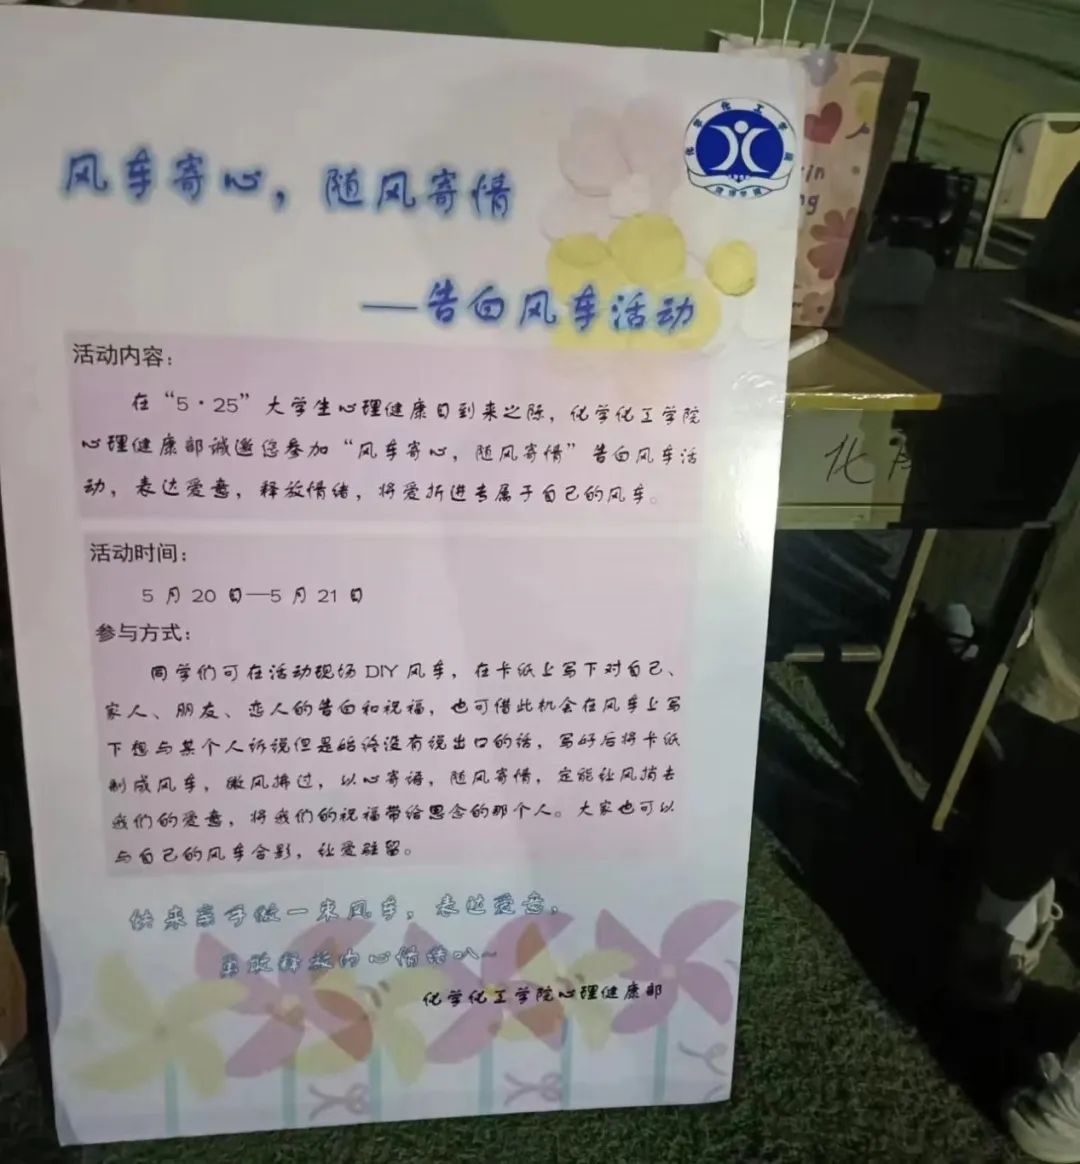 风车寄心，随风寄情
化学化工学院
——告白风车活动
活动内容：
在“5·25”大学生心理健康日到来之际，化学化工学院
心理健康部诚邀您参加“风车寄心，随风寄情”告白风车活
动，表达爱意，释放情绪，将爱折进专属于自己的风车。
活动时间：
5 月 20 日—5 月 21 日
参与方式：
同学们可在活动现场 DIY 风车，在卡纸上写下对自己、
家人、朋友、恋人的告白和祝福，也可借此机会在风车上写
下想与某个人诉说但是始终没有说出口的话，写好后将卡纸
制成风车，微风拂过，以心寄语，随风寄情，定能让风捎去
我们的爱意，将我们的祝福带给思念的那个人。大家也可以
与自己的风车合影，让爱驻留。
快来亲手做一束风车，表达爱意，
勇敢释放内心情绪叭~
化学化工学院心理健康部
化